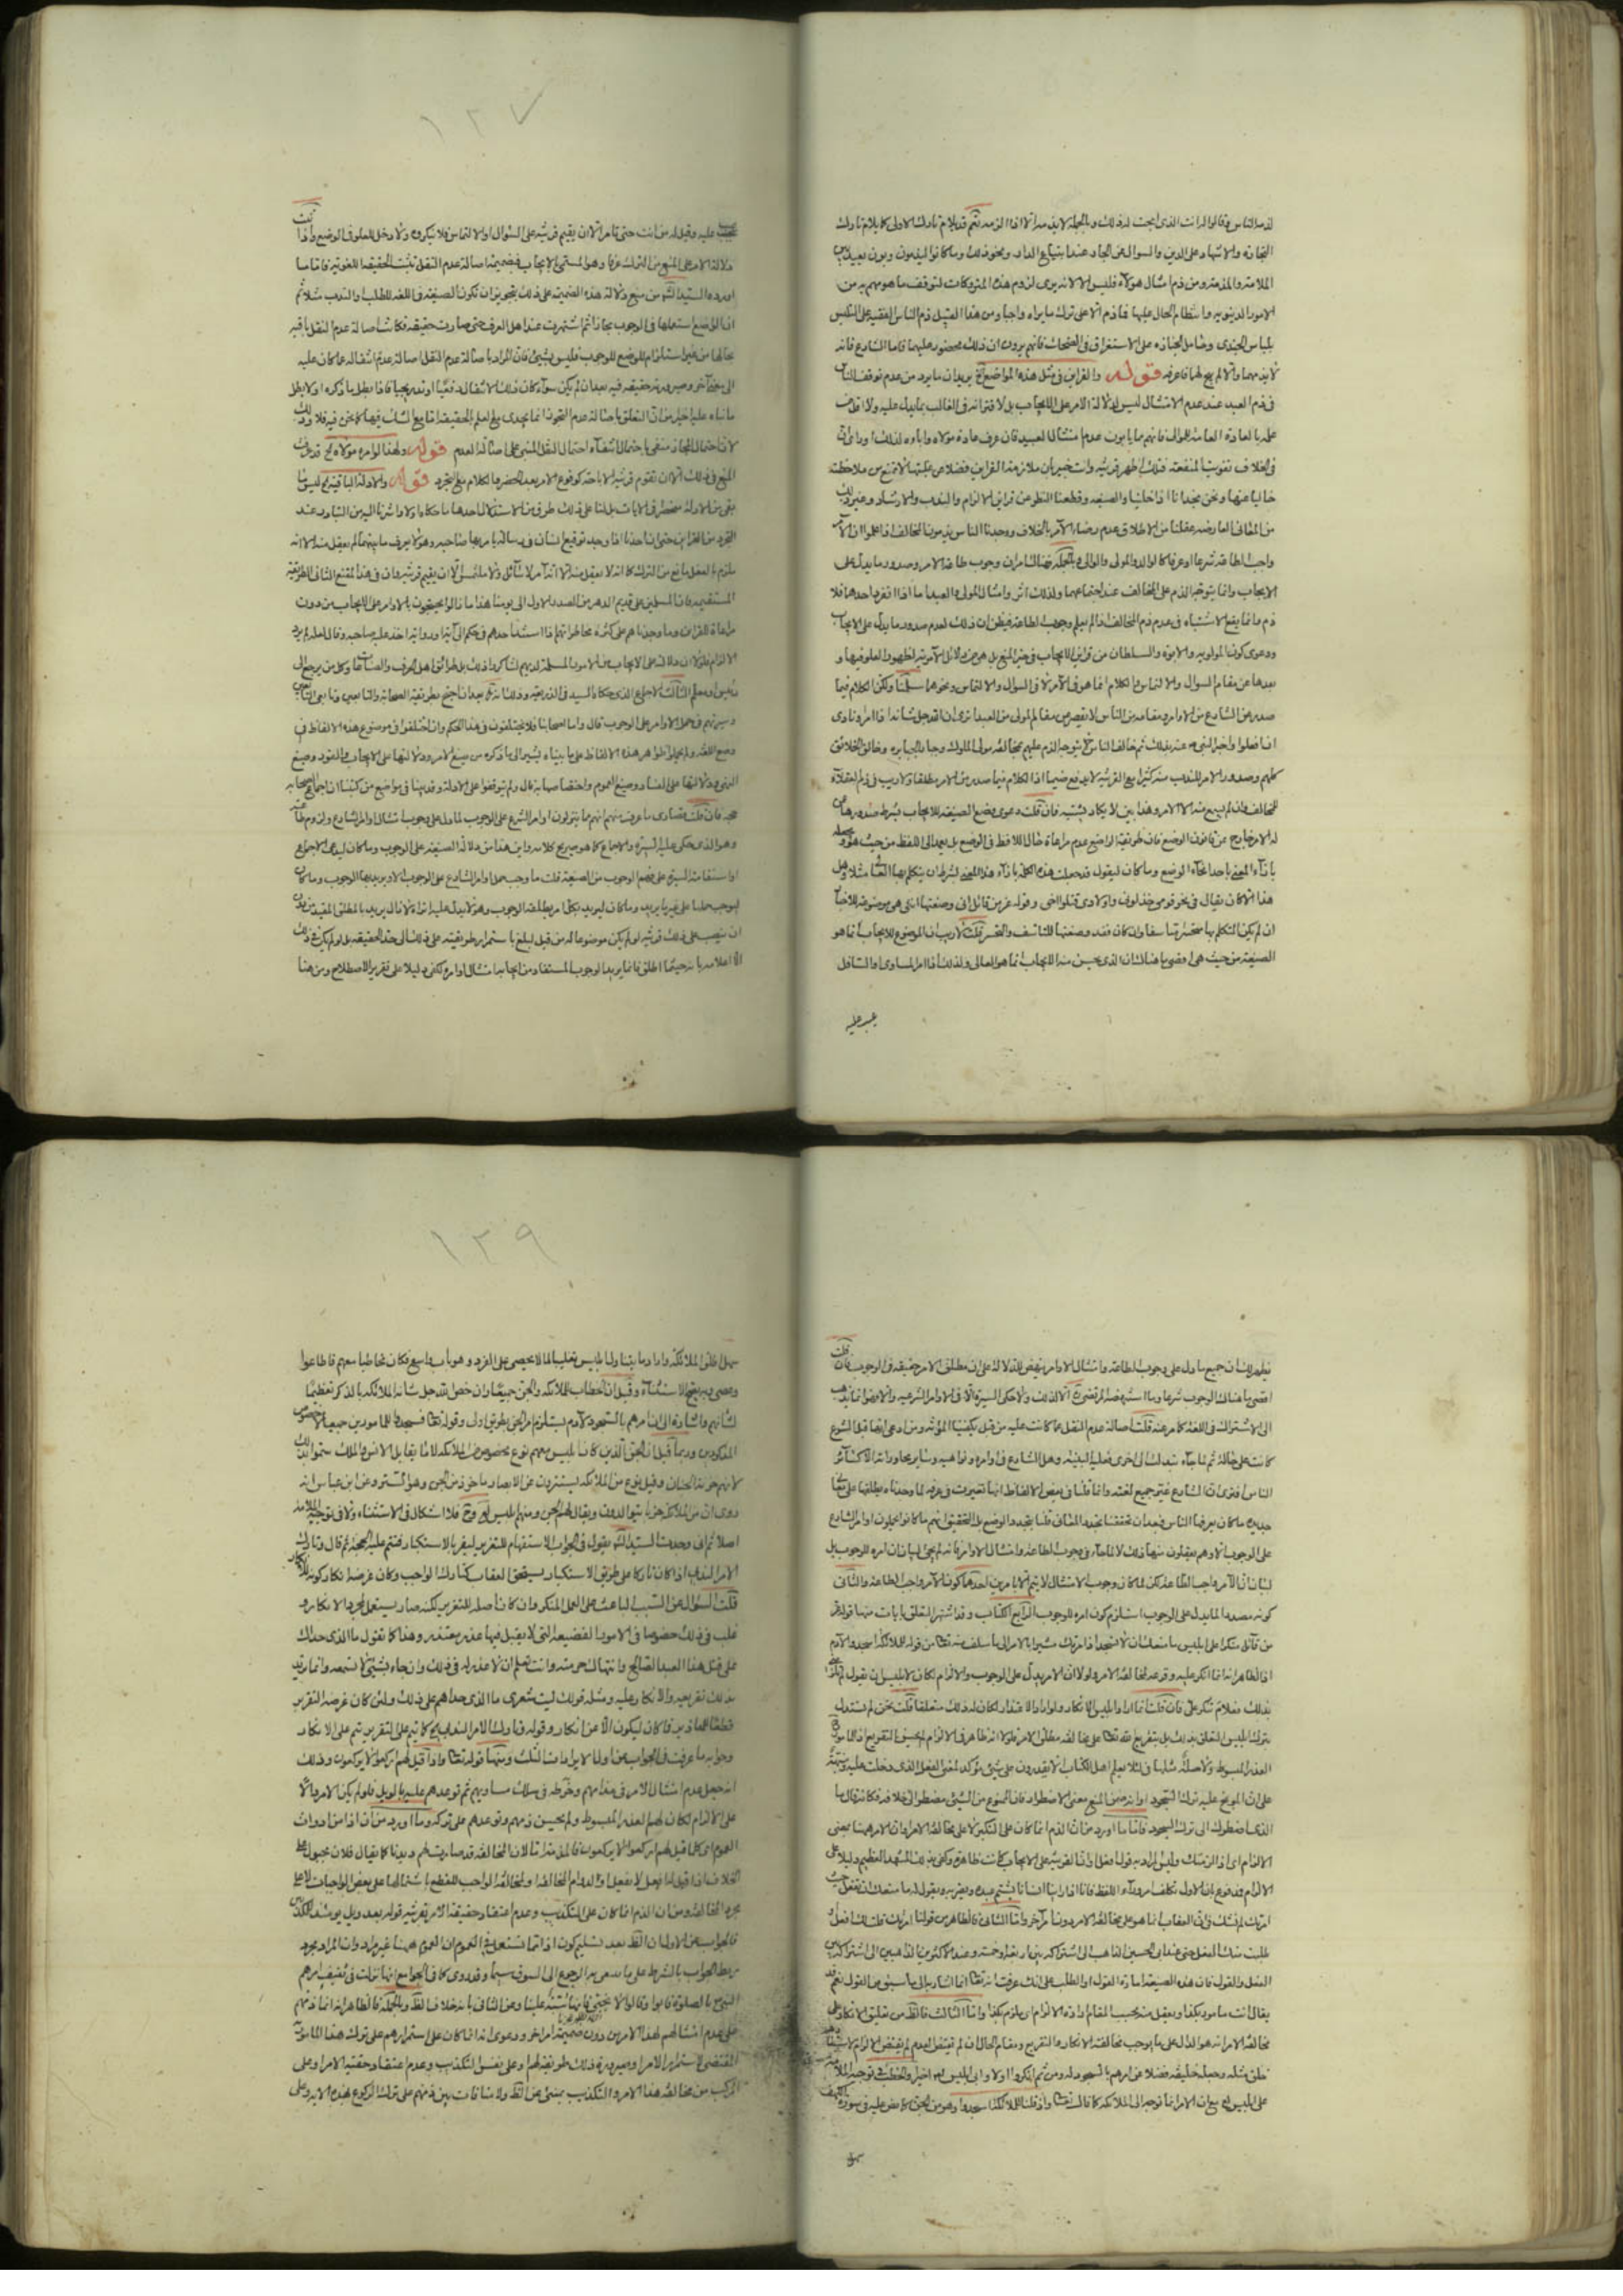 لذمه الناس وقالوا له انت الذي ابحت له ذلك وبالجملة لا يذمه الا اذا الزمه نعم قد يلام تارك الاولى كما يلام تارك
التجارة والاشهاد على الدين والسوال عن الجار عند ابتياع الدار ونحو ذلك وما كانوا ليذمون ويوبخون
الملامة والمذمة ومن ذم امثال هؤلاء فليس الا لانه يرى لزوم هذه المتروكات لتوقف ما هو مهم به من
الامور الدنيوية وانتظام الحال عليها فما ذم الا على ترك ما يراه واجبا ومن هذا القبيل ذم الناس الفقيه على التلبس
بلباس الجندي وحامل الجنازة على الاستغراق في الضحك فانهم يرون ان ذلك محضور عليهما فاما الشارع فانه
لا يذمهما والا لم يبح لهما فاعرفه قوله والقراين في مثل هذه المواضع الخ يريد ان ما يرد من عدم توقف الناس
في ذم العبد عند عدم الامتثال ليس لدلالة الامر على الايجاب بل لاقترانه في الغالب بما يدل عليه ولا اقل من
علمه بالعادة العامة للموالي فانهم ما يابون عدم امتثال العبيد فان عرف عادة مولاه واباه لذلك او راى ان
في الخلاف تفويت المنفعة فذلك اظهر قرينة وانت خبير بان ملازمة القراين فضلا عن غلبتها لا تمنع من ملاحظة
خاليا عنها ونحن مجدانا اذا خلينا والصيغة وقطعنا النظر عن قراين الالزام والندب والارشاد وغير ذلك
من المعاني العارضة عقلنا من الاطلاق عدم رضاء الآمر بالخلاف ووجدنا الناس يذمون المخالف اذا علموا ان الآمر
واجب الطاعة شرعا او عرفا كالوالد والمولى والوالي وبالجملة فهنا امران وجوب طاعة الامر وصدور ما يدل على
الايجاب وانما يتوجه الذم على المخالف عند اجتماعهما ولذلك اثر وامثال المولى والعبد اما اذا انفرد احدهما فلا
ذم وانما يقع الاشتباه في عدم ذم المخالف اذا لم يعلم وجوب اطاعته فيظن ان ذلك لعدم صدور ما يدل على الايجاب
ودعوى كون المولوية والابوة والسلطان من قراين الايجاب في حيز المنع بل هو من دلائل الآمرية لظهور العلو فيها و
بعدها عن مقام السوال والالتماس والكلام انما هو في الآمر لا في السوال والالتماس ونحوهما سلمنا ولكن الكلام فيما
صدر عن الشارع من الاوامر ومقامه من الناس لا يقصر عن مقام المولى من العبد اترى ان الله جل شانه اذا امر ونادى
ان افعلوا واخبر النبي عنه بذلك ثم خالف الناس لم يتوجه الذم عليهم بمخالفة مولى الملوك وجبار الجبابرة وخالق الخلائق
كلهم وصدور الامر للندب منه كثيرا مع القرينة لا يدفع ضيما اذ الكلام فيما صدر من الامر مطلقا ولا ريب في ذم العقلاء
للمخالف وان لم يبيح منه الا الامر وهذا بين لا يكاد يشتبه فان قلت دعوى وضع الصيغة للايجاب بشرط صدورها عن
له الامر خارج عن قانون الوضع فان طريقة الواضع عدم مراعاة حال اللافظ في الوضع بل يعمد الى اللفظ من حيث هو ويجعله
بازاء المعنى باحد انحاء الوضع وما كان ليقول قد جعلت هذه الكلمة بازاء هذا المعنى بشرط ان يتكلم بها العالي مثلا وهل
هذا الا كان يقال في نحو قومي خذلون واولادي قتلوا اخي وقوله عز من قائل اني وضعتها انثى هي موضوعة للاخبار
ان لم يكن المتكلم بها متحسرا متاسفا وان كان فقد وضعتها للتاسف والتحسر قلت لا ريب ان الموضوع للايجاب انما هو
الصيغة من حيث هي اقضي ما هناك ان الذي يحسن منه الايجاب انما هو العالي ولذلك اذا امر المساوي او السافل
عيب عليه
١٢٧
عيب عليه وقيل له من انت حتى تامر الا ان يقيم قرينة على السوال او الالتماس فلا نيكرون ولا دخل للعلو في الوضع واذا ثبت
دلالة الامر على المنع من الترك عرفا وهو المستمى بالايجاب فبضميمة اصالة عدم النقل تثبت الحقيقة اللغوية فاما ما
اورده السيد الشر من منع دلالة هذه الضميمة على ذلك بتجويز ان تكون الصيغة في اللغة للطلب والندب مثلا ثم
انفق الواضع استعملها في الوجوب مجازا ثم اشتهرت عند اهل العرف حتى صارت حقيقة فكانت اصالة عدم النقل باقية
بحالها من غير استلزام للوضع للوجوب فليس بشيء فان المراد باصالة عدم النقل اصالة عدم انتقاله عما كان عليه
الى معنى آخر وصيرورته حقيقة فيه بعد ان لم يكن سواء كان ذلك الانتقال دفعيا او تدريجيا فاذا بطل ما ذكره اولا بطل
ما بناه عليه اخيرا من ان التعلق باصالة عدم التجوز انما يجدي مع العلم بالحقيقة اما مع الشك فيها كما نحن فيه فلا وذلك
لان احتمال المجاز منفي باحتمال انتفاء احتمال النقل المبني على اصالة العدم قوله ولهذا لو امره مولاه الخ قد عرفت
المنع في ذلك الا ان تقوم قرينة الاباحة كوقوع الامر بعد الحضر والكلام مع التجرد قوله والادلة الباقية الخ ليس ما
بقي من الادلة منحصرا في الايات بل لنا على ذلك طرق من الاستدلال احدها ما حكاه اولا واشرنا اليه من التبادر عند
التجرد عن القراين حتى ان احدنا اذا وجد توقيع انسان في رسالة يامر بها صاحبه وهو لا يعرف ما بينهما لم يعقل منه الا انه
ملزم بالفعل مانع من الترك كما انه لا يعقل منه الا انه آمر لا سائل ولا ملتمس الا ان يقيم قرينة وان في هذا لمقنع الثاني الطريقة
المستقيمة فان المسلمين على قديم الدهر من الصدر الاول الى يومنا هذا ما زالوا يحتجون بالاوامر على الايجاب من دون
مراعاة للقراين وما وجدناهم على كثرة مخاطراتهم اذا استند احدهم في حكم الى آية او رواية اخذ عليه صاحبه وقال لعله لم يرد
الالزام فلولا ان دلالته على الايجاب من الامور المسلمة لديهم لتناكروا ذلك بل طرائق اهل العرف والصناعات وكل من يرجع الى
رئيس او معلم الثالث الاجماع الذي حكاه السيد في الذريعة وذلك انه بعد ان احتج بطريقة الصحابة والتابعين وتابعي التابعين
وسيرتهم في حمل الاوامر على الوجوب قال واما اصحابنا فلا يختلفون في هذا الحكم وان اختلفوا في موضوع هذه الالفاظ في
وضع اللغة ولم يحملوا ظواهر هذه الالفاظ على ما بيناه يشير الى ما ذكره من صيغ الامر ودلالتها على الايجاب والفور وصيغ
النهي ودلالتها على الفساد وصيغ العموم واختصاصها به قال ولم يتوقفوا على الادلة وقد بينا في مواضع من كتبنا ان اجماع اصحابنا
حجة فان قلت قصارى ما عرف منهم انهم ما ينزلون اوامر الشرع على الوجوب لما دل على وجوب امتثال اوامر الشارع ولزوم طاعته
وهو الذي حكى عليه السيرة والاجماع كما هو صريح كلامه واين هذا من دلالة الصيغة على الوجوب وما كان ليدعى الاجماع
او استفامة السيرة على فهم الوجوب من الصيغة قلت ما وجب حمل اوامر الشارع على الوجوب الا وبريد بها الوجوب وما كان
ليوجب حملها على غير ما يريد وما كان ليريد بكل امر يطلقه الوجوب وهو لا يدل عليه اتراه لا زال يريد بالمطلق المقيد من دون
ان ينصب على ذلك قرينة لو لم يكن موضوعا له من قبل لبلغ باستمرار طريقته على ذلك الى حد الحقيقة بل لو لم يكن في ذلك
الا اعلامه بانه حيثما اطلق فانما يريد الوجوب المستفاد من ايجاب امتثال اوامره لكفى دليلا على تقرير الاصطلاح ومن هنا
يظهر لك ان جميع ما دل على وجوب اطاعته وامتثال الاوامر ينهض للدلالة على ان مطلق الامر حقيقة في الوجوب فان قلت
اقصى ما هناك الوجوب شرعا وما استنهضه المرتضى الا لذلك ولا حكى السيرة الا في الاوامر الشرعية والا فهو انما يذهب
الى الاشتراك في اللغة كما مر عنه قلت اصالة عدم النقل عما كانت عليه من قبل يكفينا المؤنة ومن ادعى انها قبل الشرع
كانت على حالة ثم لما جاء تبدلت الى اخرى فعليه البينة وهل الشارع في اوامره ونواهيه وساير محاوراته الا كسائر
الناس افترى ان الشارع غير جميع لغته وانما قلنا في بعض الالفاظ انها تغيرت في عرفه لما وجدناه يطلقها على معان
جديدة ما كان يعرفها الناس فبعد ان تحققنا تجدد المعاني قلنا بتجدد الوضع بل التحقيق انهم ما كانوا يحملون اوامر الشارع
على الوجوب الا وهم يعقلون منها ذلك لا لما جاء في وجوب اطاعته وامتثال الاوامر فانه لم يجئ لبيان ان امره للوجوب بل
لبيان ان الآمر واجب الطاعة لكن لما كان وجوب الامتثال لا يتم الا بامرين احدهما كون الآمر واجب الطاعة والثاني
كون مصدر الما يدل على الوجوب استلزم كون امره للوجوب الرابع الكتاب وقد اشتهر التعلق بايات منها قوله
من قائل منكرا على ابليس ما منعك ان لا تسجد اذ امرتك مشيرا بالامر الى ما سلف منه تعالى من قوله للملائكة اسجدوا لآدم
اذ الظاهر انه انما انكر عليه وقرعه لمخالفة الامر ولولا ان الامر يدل على الوجوب والالزام لكان لابليس ان يقول لم تلزمني
بذلك فعلام تنكر علي فان قلت انما اراد ابليس الانكار ولو اراد الاقتدار لكان له ذلك متعلقا قلت نحن لم نستدل
بترك ابليس التعلق بذلك بل بتقريع الله تعالى على مخالفة مطلق الامر فلولا انه ظاهر في الالزام لم يصح التقريع اذ المامور
العذر المبسوط ولا صلة مثلها في لئلا يعلم اهل الكتاب الا يقدرون على شيء مؤكد لمعنى الفعل الذي دخلت عليه ومنبه
على ان الموبخ عليه ترك السجود او انه ضمن المنع معنى الاضطرار فان الممنوع من الشيء مضطر الى خلافه فكانه قال ما
الذي اضطرك الى ترك السجود فاما ما اورد من ان الذم انما كان على التكبر لا على مخالفة الامر وان الامر ههنا بمعنى
الالزام اي اذ الزمتك وليس المراد به قولا وفعلا وان القرينة على الايجاب كانت ظاهرة وكفى بذلك المشهد العظيم دليلا على
الالزام فمدفوع بان الاول تكلف امر وراء اللفظ فانا اذا راينا انسانا يشتم عبده ويضربه ويقول له ما منعك ان تفعل حيث
امرتك لم نشك في ان العقاب انما هو على مخالفة الامر دون امر آخر واما الثاني فالظاهر من قولنا امرتك قلت لك افعل او
طلبت منك الفعل حتى عند ابي الحسين الذاهب الى اشتراكه بين اربعة او خمسة وعند الاكثرين الذاهبين الى اشتراكه بين
الفعل والقول فان هذه الصيغة امارة القول او الطلب على انك عرفت انه تعالى انما اشار به الى ما سبق من القول نعم قد
يقال انت مامور بكذا ويعقل منه بحسب المقام ارادة الالزام اي ملزم بكذا واما الثالث فالظاهر من تعليق الانكار على
مخالفة الامر انه هو الدال على ما يوجب مخالفته الانكار والتقريع ومقام الحال ان لم يقتض العدم لم يقتض الالزام
خلق مثله وجعله خليفة فضلا عن امرهم بالسجود له ومن ثم انكروا اولا وابى ابليس اخيرا والخطب في توجيه الملامة
على ابليس مع ان الامر انما توجه الى الملائكة كما قال تعالى واذ قلنا للملائكة اسجدوا وهو من الجن كما نص عليه في سورة الكهف
سهل
١٢٩
سهل اطلق الملائكة واراد ما يتناول ابليس تغليبا لما لا يحصى على الفرد وهو باب واسع فكان مخاطبا معهم فاطاعوا
وعصى وبه يصح الاستثناء وقيل ان الخطاب للملائكة والجن جميعا وان خص الله جل شانه الملائكة بالذكر تعظيما
لشانهم واشارة الى ان امرهم بالسجود لآدم يستلزم امر الجن بطريق اولى وقوله تعالى فسجدوا للمامورين جميعا لا خصوص
المذكورين وربما قيل ان الجن الذين كان ابليس معهم نوع مخصوص من الملائكة لا ما يقابل الانس والملك سموا بذلك
لانهم خزنة الجنان وقيل نوع من الملائكة يستترون عن الابصار ماخوذ من الجن وهو الستر وعن ابن عباس انه
روى ان من الملائكة ضربا يتوالدون ويقال لهم الجن ومنهم ابليس وح فلا اشكال في الاستثناء ولا في توجيه الملامة
اصلا ثم اني وجدت السيد الشر يقول في الجواب الاستفهام للتقرير ليقر بالاستكبار فتتم عليه الحجة ثم قال وتارك
الامر الندبي اذا كان تاركا على طريق الاستكبار يستحق العقاب كتارك الواجب وكان غرضه انكار كونه للانكار
قلت السؤال عن السبب الباعث على العمل المنكر وان كان اصله للتقرير لكنه صار يستعمل لمجرد الانكار و
غلب في ذلك خصوصا في الامور الفضيعة التي لا يقبل فيها عذر معتذر وهذا كما تقول ما الذي حداك
على قتل هذا العبد الصالح وانتهاك حرمته وانت تعلم ان لا عذر له في ذلك وان جاء بشيء لا تسمعه وانما تريد
بذلك تقريعه والانكار عليه ومثله قولك ليت شعري ما الذي حداهم على ذلك ولئن كان غرضه التقرير
قطعا للمعاذير فما كان ليكون الا عن انكار وقوله وتارك الامر الندبي الخ كانه على التقرير يتم على الانكار
وجوابه ما عرفت في الجواب عن اول الايرادات الثلث ومنها قوله تعالى واذا قيل لهم اركعوا لا يركعون وذلك
انه جعل عدم امتثال الامر في مقدامهم وخرطه في سلك مساويهم ثم توعدهم عليه بالويل فلو لم يكن الامر دالا
على الالزام لكان لهم العذر المبسوط ولم يحسن ذمهم وتوعدهم على تركه وما اورد من ان اذا من ادوات
العموم اي كلما قيل لهم اركعوا لا يركعون فالمذمة انما لان المخالفة قد صارت لهم ديدنا كما يقال فلان مجبول على
الخلاف اذا قيل له افعل لا يفعل او لدوام المخالفة او لمخالفة الواجب للقطع باشتمالها على بعض الواجبات لا على
مجرد المخالفة ومن ان الذم انما كان على التكذيب وعدم اعتقاد حقيقة الامر بقرينة قوله بعد ويل يومئذ للمكذبين
فالجواب عن الاول ان الظ بعد تسليم كون اذا تستعمل في العموم ان العموم ههنا غير مراد وان المراد مجرد
ربط الجواب بالشرط على ما يدعى به الرجوع الى السوق سيما وقد روى كما في الجوامع انها نزلت في ثقيف امرهم
النبي ص بالصلوة فابوا وقالوا لا ننحني فانها سبة علينا وعن الثاني بانه خلاف الظ وبالجملة فالظاهر انه انما ذمهم
على عدم امتثالهم لهذا الامر من دون ضميمة امر آخر ودعوى انه انما كان على استمرارهم على ترك هذا المامور
المقتضي لاستمرار الامر وصيرورة ذلك طريقة لهم او على نفس التكذيب وعدم اعتقاد حقية الامر او على
المركب من مخالفة هذا الامر والتكذيب بمعنى عن الظ ولا منافات بين ذمهم على ترك الركوع بهذه الاية وعلى